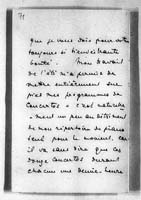 que je vous dois pour votre
toujours si bienveillante
bonté. Mon travail
de l'été m'a permis de
mettre entièrement sur
pied mes programmes de
Concertos - c'est naturelle-
-ment un peu au détriment
de mon répertoire de piano
seul pour le moment, car
il va sans dire que ces
douze concertos durant
chacun une demie-heure